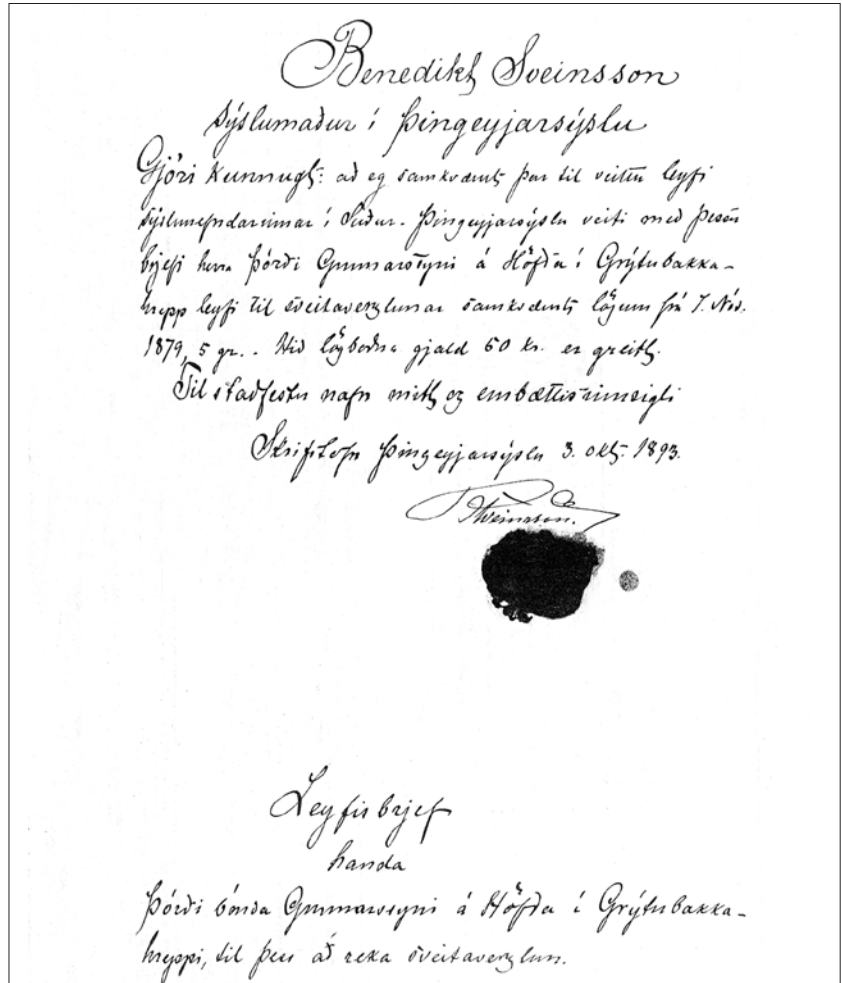 Benedikt Sveinsson
sýslumaður í Þingeyjarsýslu
Gjöri kunnugt: að eg samkvæmt þar til veittu leyfi
sýslunefndarinnar í Suður-Þingeyjarsýslu veiti með þessu
brjefi herra Þórði Gunnarssyni á Höfða í Grýtubakka-
hrepp leyfi til sveitaverzlunar samkvæmt lögum frá 7. Nóv.
1879, 5 gr.. Hið lögboðna gjald 50 kr. er greitt.
Til staðfestu nafn mitt og embættisinnsigli
Skrifstofu Þingeyjarsýslu 3. okt. 1893.
Sveinsson.
Leyfisbrjef
handa
Þórði bónda Gunnarssyni á Höfða í Grýtubakka-
hreppi, til þess að reka sveitaverzlun.